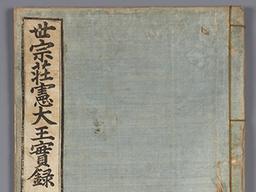 世宗莊憲大王實録